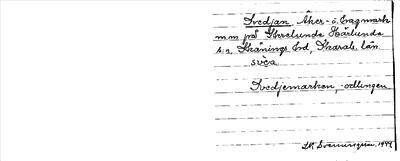 Svedjan, Åker- o. Hagmark
mm på Stenslunda Härlunda
s:n, Skånings hd, Skarab. län.
svea
Svedjemarken, -odlingen
Svenningsson. 1944